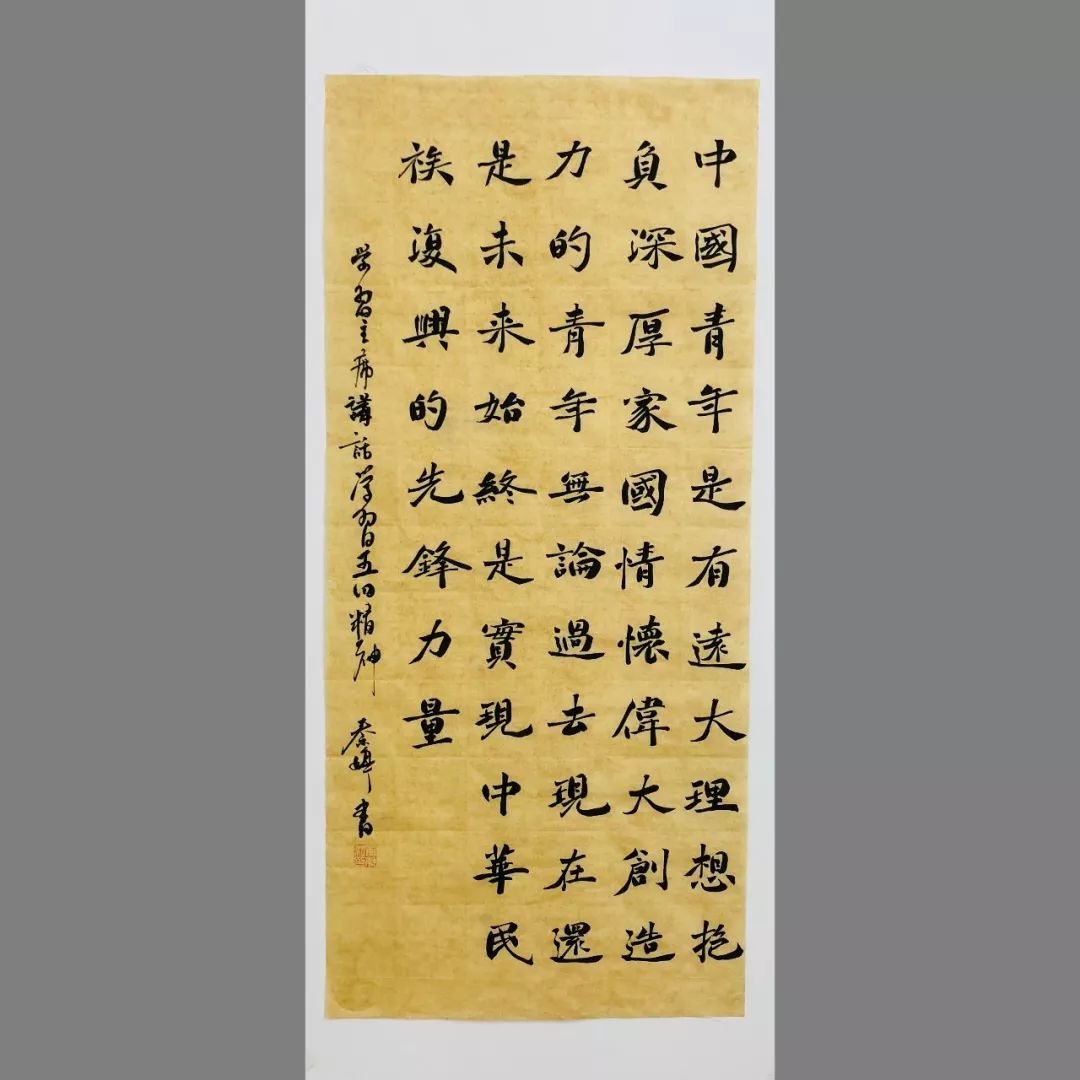 中國青年是有遠大理想抱
負深厚家國情懷偉大創造
力的青年無論過去現在還
是未来始終是實現中華民
族復興的先鋒力量
学習主席講話学習五四精神 秦 书